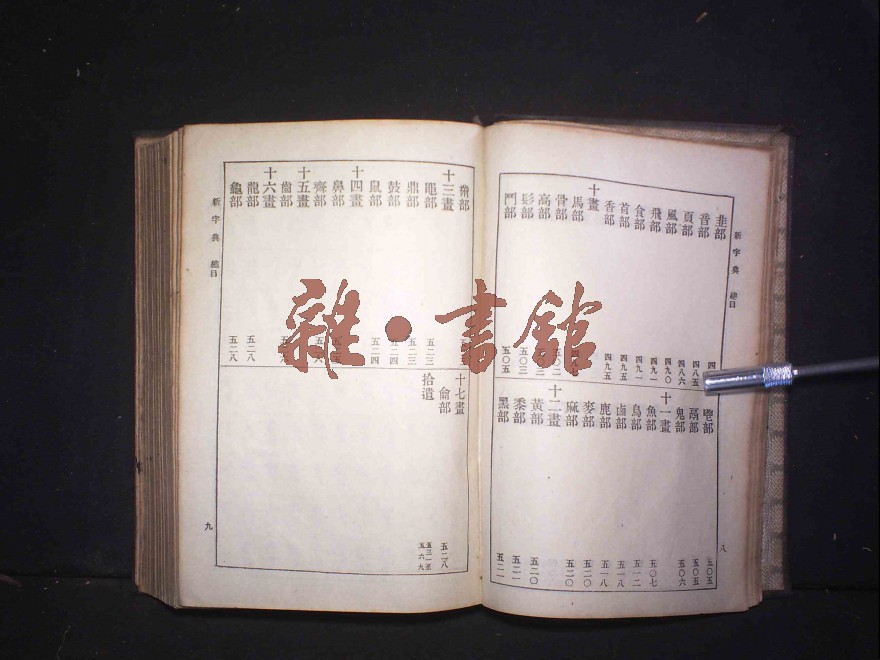 新字典 總目
八
韭部
音部 四八五
頁部 四八六
風部 四九〇
飛部 四九一
食部 四九一
首部 四九五
香部 四九五
十畫
馬部
骨部
高部
髟部 五〇三
鬥部 五〇五
鬯部 五〇五
鬲部 五〇五
鬼部 五〇六
十一畫
魚部 五〇七
鳥部 五一二
鹵部 五一八
鹿部 五一八
麥部 五二〇
麻部 五二〇
十二畫
黃部 五二〇
黍部 五二一
黑部 五二一
黹部
十三畫
黽部 五二三
鼎部 五二三
鼓部 五二四
鼠部 五二四
十四畫
鼻部
齊部
十五畫
齒部
十六畫
龍部 五二八
龜部 五二八
十七畫
龠部 五二八
拾遺 五三一至五六九
新字典 總目
九
雜●書館